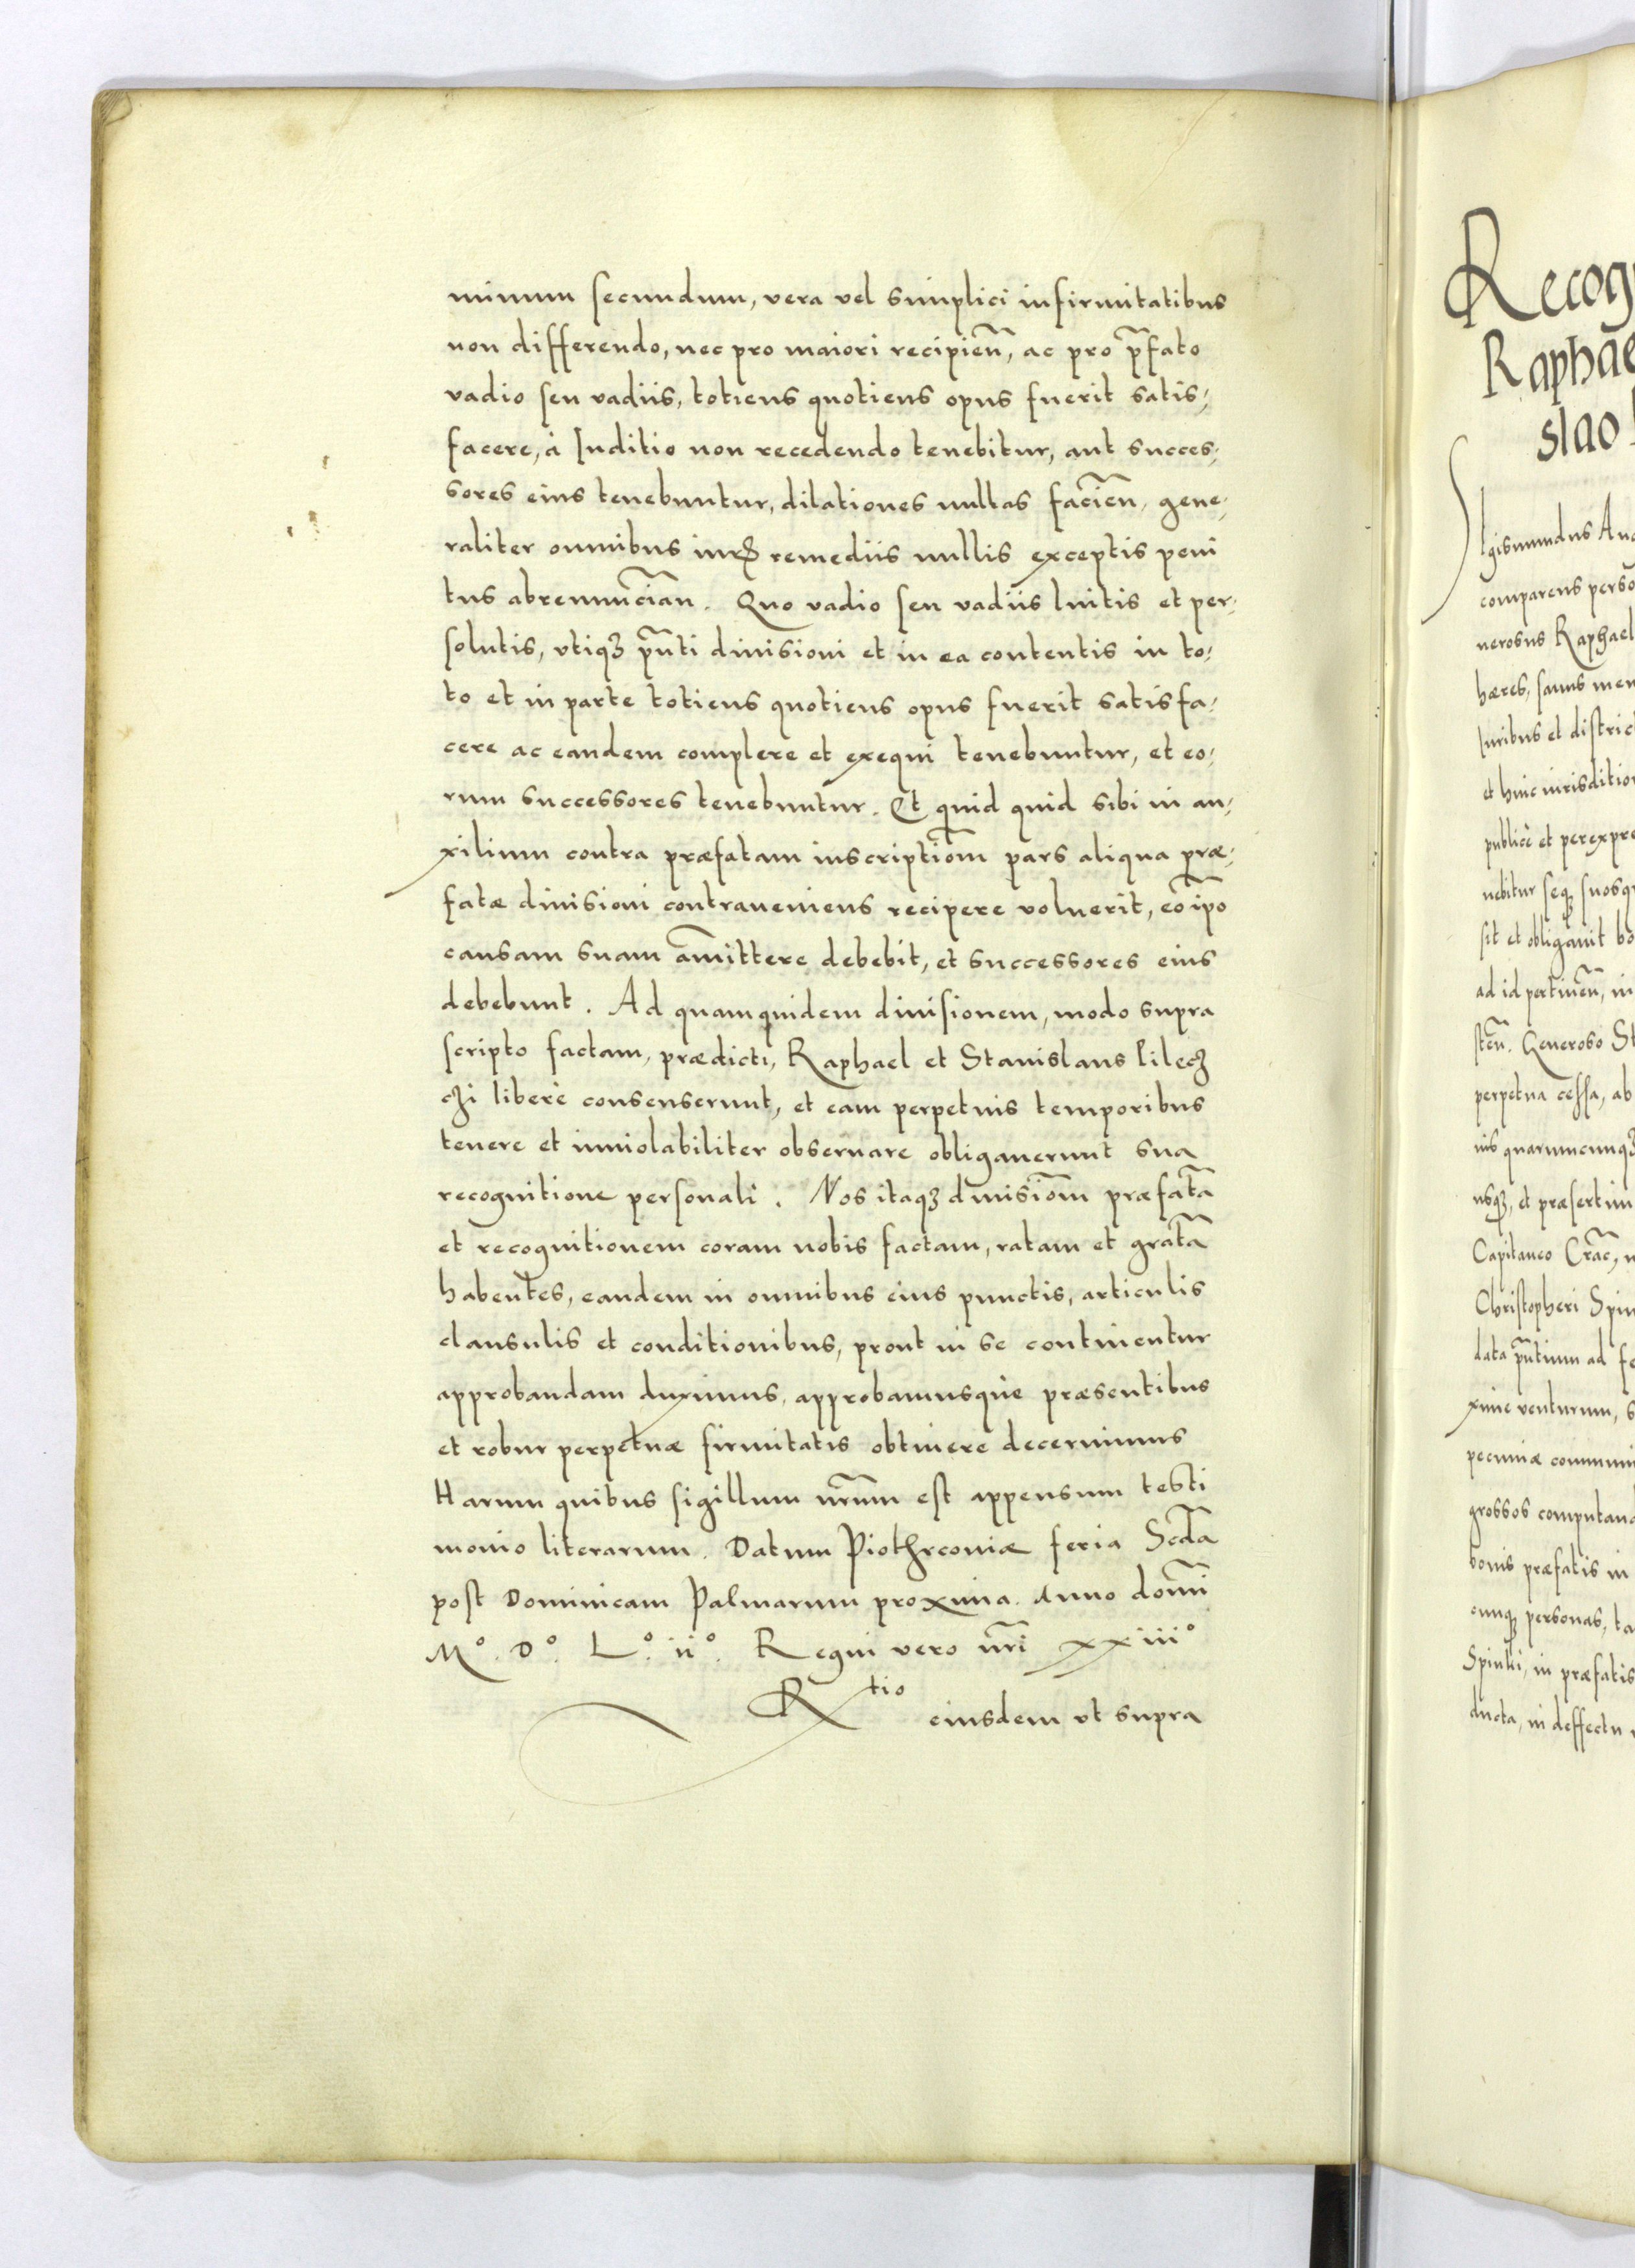 minum secundum, vera vel simplici infirmitatibus
non differendo, nec pro maiori recipien̄, ac pro p̄fato
vadio seu vadiis, totiens quotiens opus fuerit satis,
facere, à Iuditio non recedendo tenebitur, aut succes,
sores eius tenebuntur, dilationes nullas facien̄, gene,
raliter omnibus iurꝫ remediis nullis exceptis peni
tus abrenuncian̄. Quo vadio seu vadiis luitis et per,
solutis, vtiqꝫ pn̄ti diuisioni et in ea contentis in to,
to et in parte totiens quotiens opus fuerit satisfa,
cere ac eandem complere et exequi tenebuntur, et eo,
rum successores tenebuntur. Et quid quid sibi in au,
xilium contra præfatam inscriptiōm pars aliqua præ,
fatæ diuisioni contraueniens recipere voluerit, eō ip̄o
causam suam am̄ittere debebit, et successores eius
debebunt. Ad quamquidem diuisionem, modo supra
scripto factam, prædicti, Raphael et Stanislaus Pilecꝫ
cꝫi liberè consenserunt, et eam perpetuis temporibus
tenere et inuiolabiliter obseruare obligauerunt sua
recognitione personali. Nos itaqꝫ diuisiōm præfatā
et recognitionem coram nobis factam, ratam et gratā
habentes, eandem in omnibus eius punctis, articulis
clausulis et conditionibus, prout in se continentur
approbandam duximus, approbamusque præsentibus
et robur perpetuæ firmitatis obtinere decernimus
Harum quibus sigillum nr̄um est appensum testi
monio literarum. Datum Piothrconiæ feria Scd̄a
post Dominicam Palmarum proxima. Anno domī
Mº. Dº. Lº. iiº. Regni vero nr̄i xxiiiº
Rtio eiusdem vt supra
Recog
Raphae
slao
Igismundus Au
comparens perso
nerosus Raphael
hæres, sanus men
Iuribus et distric
et huic iurisditio
publicè et perexpre
nebitur seqꝫ suosq
sit et obligauit bo
ad id pertinen̄, in
sten̄. Generoso St
perpetua cessa, ab
uis quarumcunqꝫ
usqꝫ, et præsertim
Capitaneo Crac̄,
Christopheri Spin
data pn̄tium ad fe
xime venturum, s
pecuniæ communi
grossos computan
bonis præfatis in
cunqꝫ personas, ta
Spinki, in præfatis
ducta, in deffectu